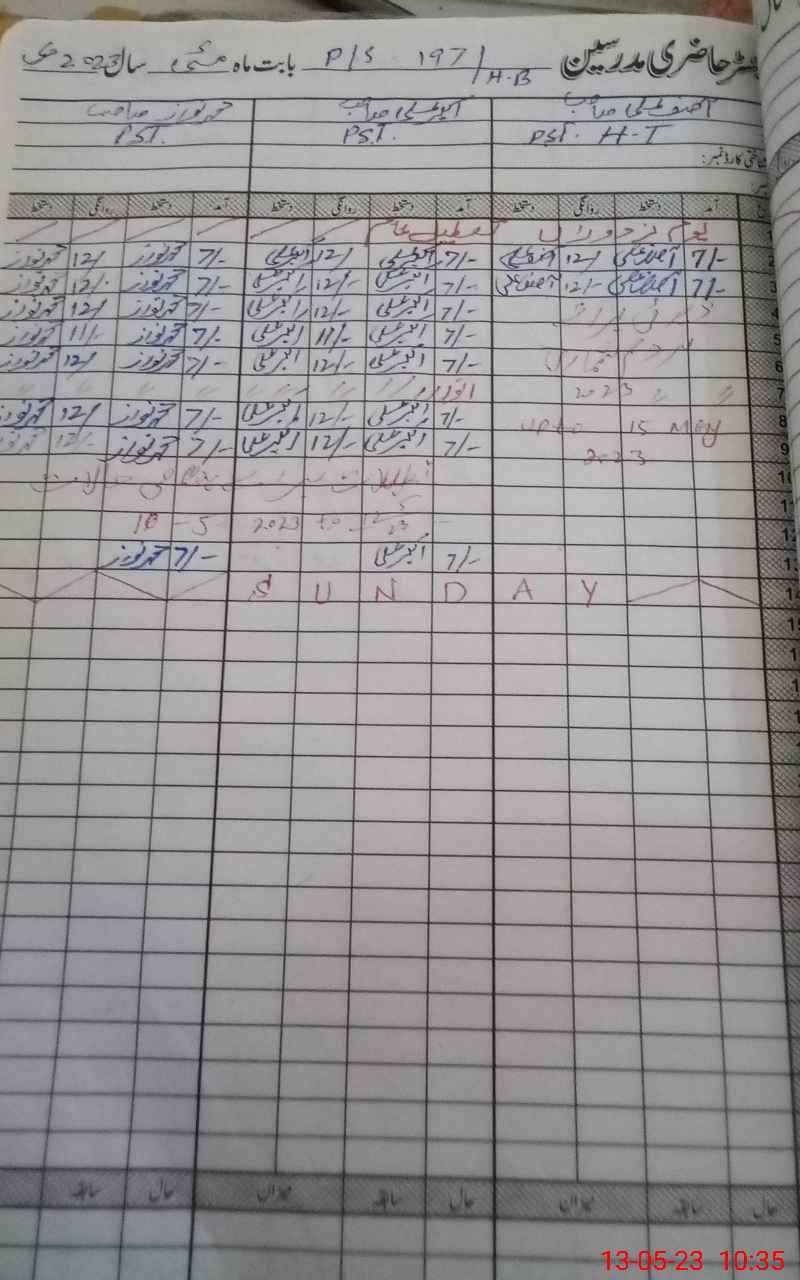 رجسٹر حاضری مدرسین P/S 197/H-B بابت ماہ مئی سال 2023
آصف علی صاحب اکبر علی صاحب محمد نواز صاحب
PST. H-T PST. PST.
شناختی کارڈ نمبر:
آمد دستخط روانگی دستخط آمد دستخط روانگی دستخط آمد دستخط روانگی دستخط
یوم مزدوراں تعطیل عام
2 7/- آصف علی 12/ آصف علی 7/- اکبر علی 12/- اکبر علی 7/- محمد نواز 12/ محمد نواز
3 7/- آصف علی 12/- آصف علی 7/- اکبر علی 12/- اکبر علی 7/- محمد نواز 12/- محمد نواز
4 7/- اکبر علی 12/- اکبر علی 7/- محمد نواز 12/ محمد نواز
5 مردم شماری 7/- اکبر علی 11/- اکبر علی 7/- محمد نواز 11/- محمد نواز
6 7/- اکبر علی 12/- اکبر علی 7/- محمد نواز 12/ محمد نواز
7 2023 اتوار
8 upto 15 May 7/- اکبر علی 12/- اکبر علی 7/- محمد نواز 12/ محمد نواز
9 2023 7/- اکبر علی 12/- اکبر علی 7/- محمد نواز 12/-
10 - 5 2023 to 12 5 23
13 7/- اکبر علی 7/- محمد نواز
14 SUNDAY
حال سابقہ میزان حال سابقہ میزان حال سابقہ
13-05-23 10:35